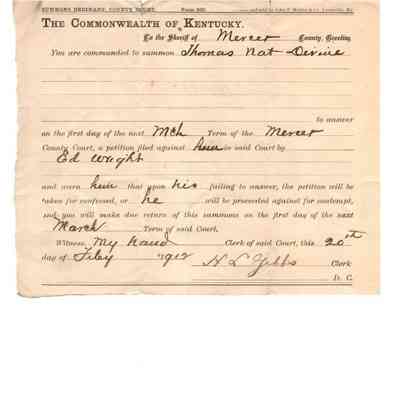 SUMMONS ORDINARY, COUNTY COURT. Form 205
THE COMMONWEALTH OF KENTUCKY.
To the Sheriff of Mercer County, Greeting
You are commanded to summon Thomas Nat Devine
to answer
on the first day of the next Mch Term of the Mercer
County Court, a petition filed against him in said Court by
Ed Wright
and warn him that upon his failing to answer, the petition will be
taken for confessed, or he will be proceeded against for contempt,
and you will make due return of this summons on the first day of the next
March Term of said Court.
Witness, My hand Clerk of said Court, this 20th
day of Feby 1912 H L Gibbs Clerk
D. C.